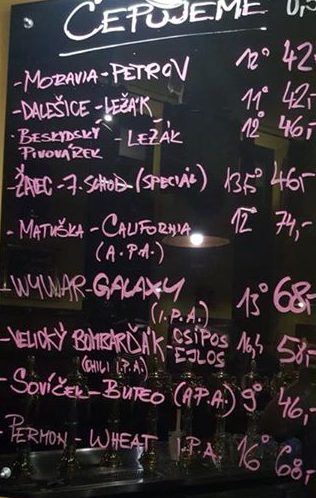 ČEPUJEME 0,5
- MORAVIA - PETROV 12° 42,-
- DALEŠICE - LEŽÁK 11° 42,-
- BESKYDSKÝ PIVOVÁREK LEŽÁK 12° 46,-
- ŽATEC - 7. SCHOD (SPECIÁL) 13,5° 46,-
- MATUŠKA - CALIFORNIA 12° 74,-
(A.P.A.)
- WYWAR - GALAXY 13° 68,-
(I.P.A.)
- VELICKÝ BOMBARĎÁK - CSÍPÖS 16,4 58,-
(CHILI I.P.A.) EJLOS
- SOVÍČEK - BUTEO (APA.) 9° 46,-
- PERMON - WHEAT I.P.A. 16° 68,-